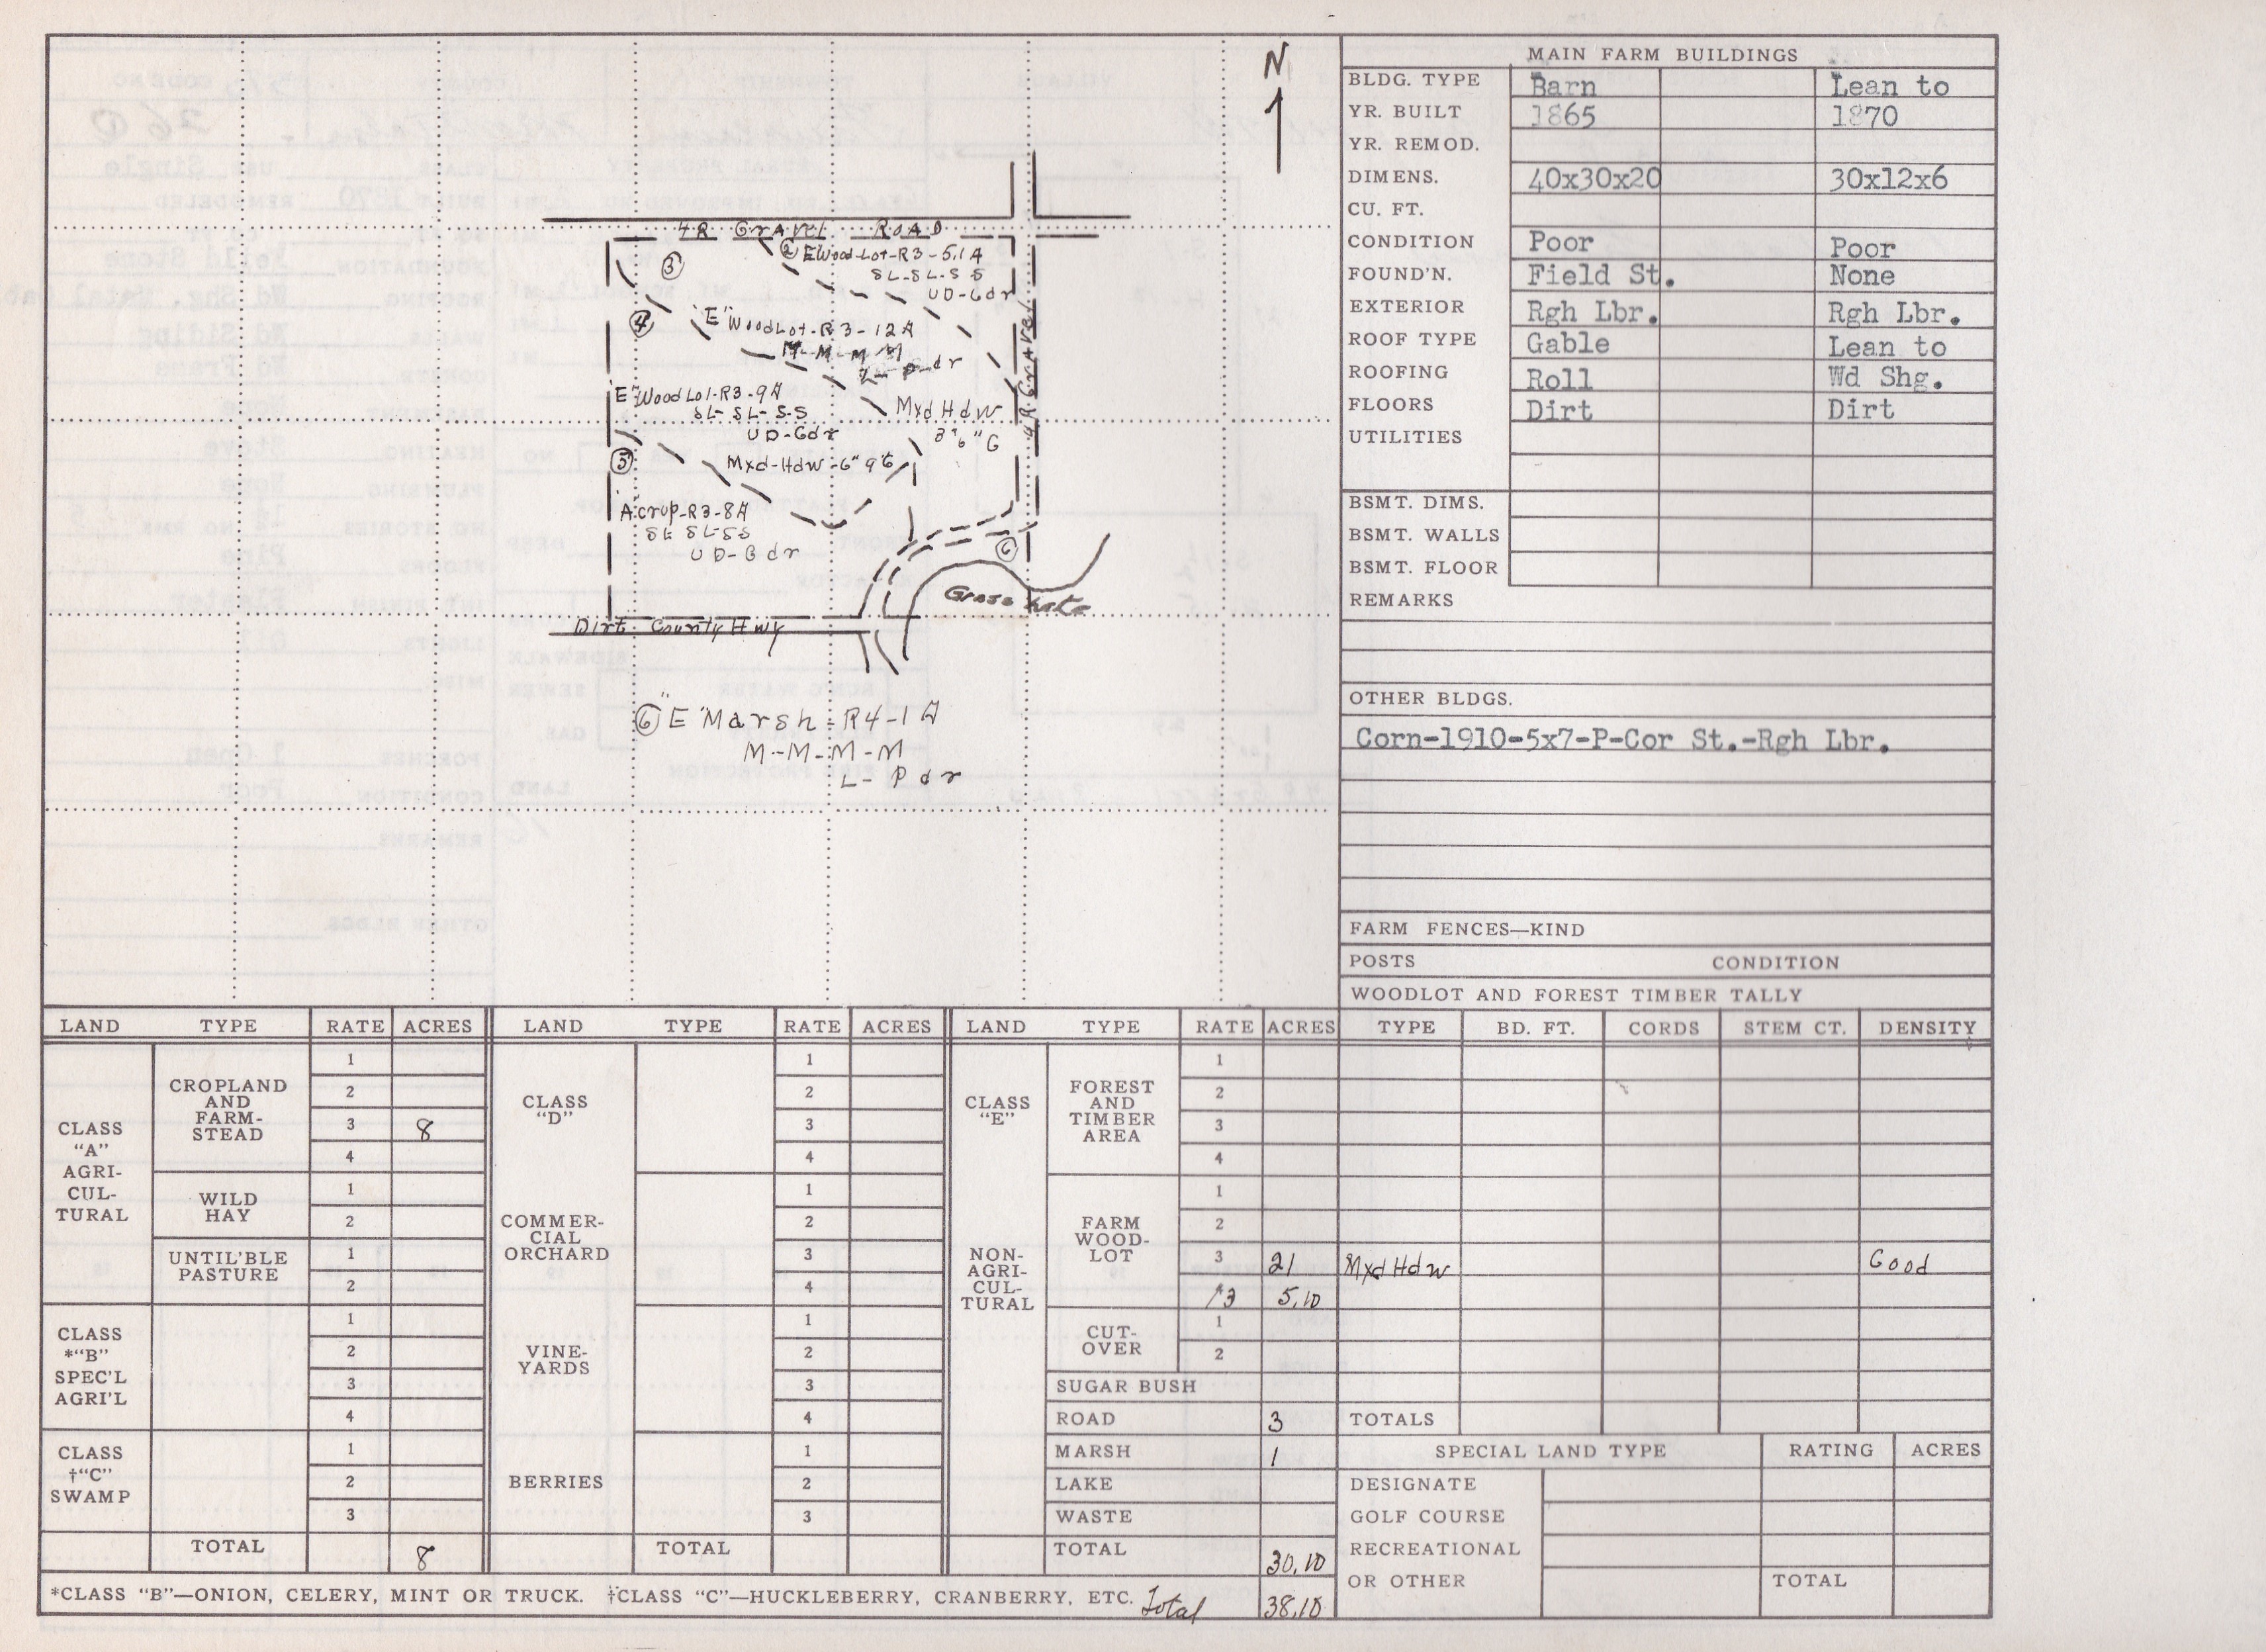 N
4R Gravel Road
② E Wood-Lot-R3-5.1A
SL-SL-S S
UD-Gdr
③
④
"E" WoodLot-R3-12A
M-M-M-M
L-P-dr
4R Gravel
"E" Wood Lot-R3-9A
SL-SL-S-S
UD-Gdr
Mxd Hdw
3"6" G
⑤
Mxd-Hdw-6"9"G
"A" crop-R3-8A
SL SL-SS
UD-Gdr
⑥
Grass Lake
Dirt County Hwy
⑥ "E" Marsh-R4-1A
M-M-M-M
L-P dr
MAIN FARM BUILDINGS
BLDG. TYPE Barn Lean to
YR. BUILT 1865 1870
YR. REMOD.
DIMENS. 40x30x20 30x12x6
CU. FT.
CONDITION Poor Poor
FOUND'N. Field St. None
EXTERIOR Rgh Lbr. Rgh Lbr.
ROOF TYPE Gable Lean to
ROOFING Roll Wd Shg.
FLOORS Dirt Dirt
UTILITIES
BSMT. DIMS.
BSMT. WALLS
BSMT. FLOOR
REMARKS
OTHER BLDGS.
Corn-1910-5x7-P-Cor St.-Rgh Lbr.
FARM FENCES—KIND
POSTS CONDITION
WOODLOT AND FOREST TIMBER TALLY
LAND TYPE RATE ACRES LAND TYPE RATE ACRES LAND TYPE RATE ACRES TYPE BD. FT. CORDS STEM CT. DENSITY
CLASS "A" AGRI-CUL-TURAL
CROPLAND AND FARM-STEAD
1
2
3 8
4
WILD HAY
1
2
UNTIL'BLE PASTURE
1
2
CLASS *"B" SPEC'L AGRI'L
1
2
3
4
CLASS †"C" SWAMP
1
2
3
TOTAL 8
CLASS "D"
1
2
3
4
COMMER-CIAL ORCHARD
1
2
3
4
VINE-YARDS
1
2
3
4
BERRIES
1
2
3
TOTAL
CLASS "E"
NON-AGRI-CUL-TURAL
FOREST AND TIMBER AREA
1
2
3
4
FARM WOOD-LOT
1
2
3 21 Mxd Hdw Good
3 5.10
CUT-OVER
1
2
SUGAR BUSH
ROAD 3
MARSH 1
LAKE
WASTE
TOTAL 30.10
TOTALS
SPECIAL LAND TYPE RATING ACRES
DESIGNATE
GOLF COURSE
RECREATIONAL
OR OTHER TOTAL
*CLASS "B"—ONION, CELERY, MINT OR TRUCK. †CLASS "C"—HUCKLEBERRY, CRANBERRY, ETC. Total 38.10